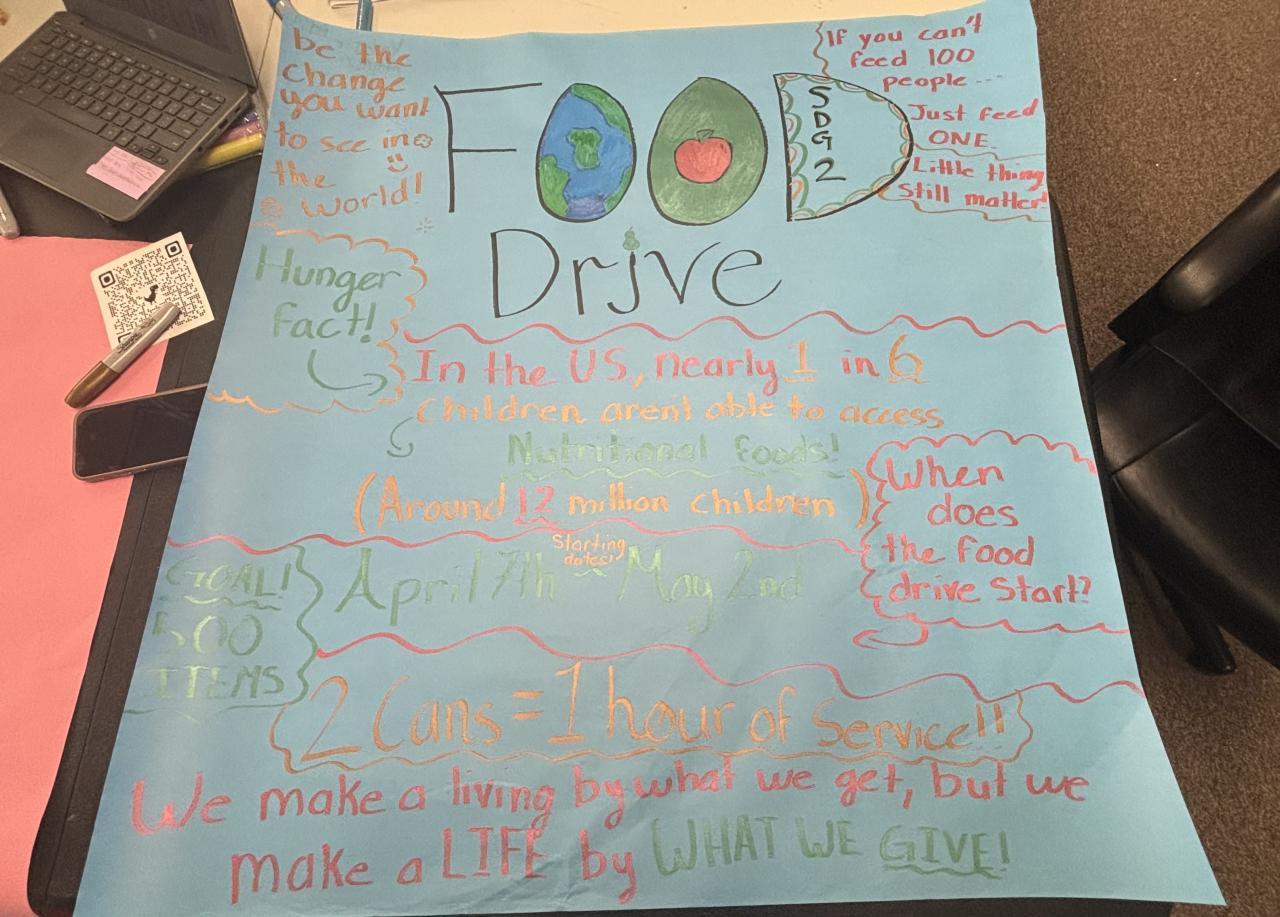 be the
change
you want
to see in
the
world!
FOOD
SDG 2
Drive
If you can't
feed 100
people ...
Just feed
ONE.
Little thing
Still matter
Hunger
fact!
In the US, nearly 1 in 6
Children aren't able to access
Nutritional foods!
(Around 12 million children)
When
does
the food
drive Start?
Starting
dates!
April 7th - May 2nd
GOAL!
500
ITEMS
2 Cans = 1 hour of Service!!
We make a living by what we get, but we
make a LIFE by WHAT WE GIVE!
Sharpie